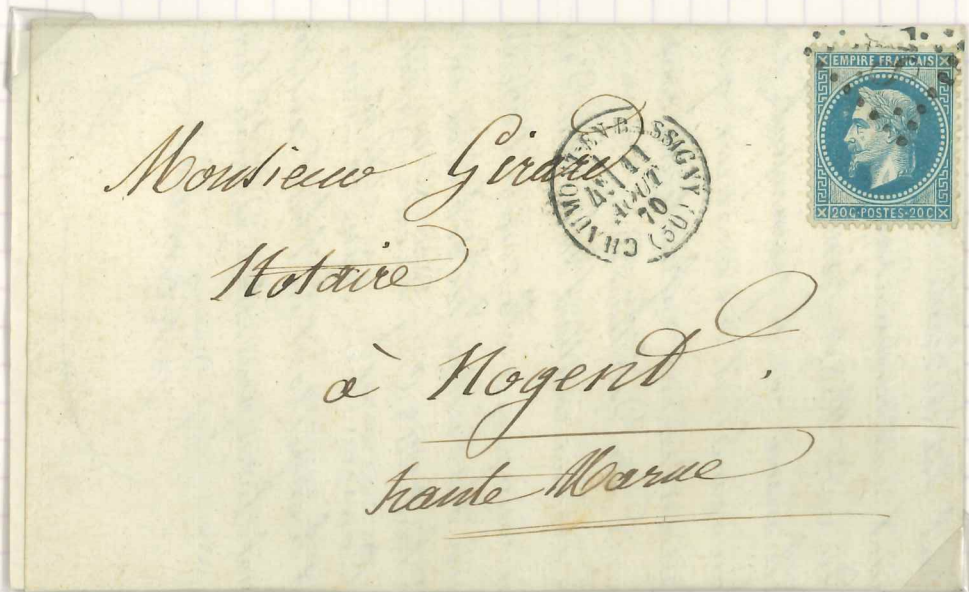 EMPIRE FRANÇAIS
20 C - POSTES - 20 C
CHAUMONT-EN-BASSIGNY (50)
4E 11
AOUT
70
Monsieur Girard
Notaire
à Nogent.
haute Marne